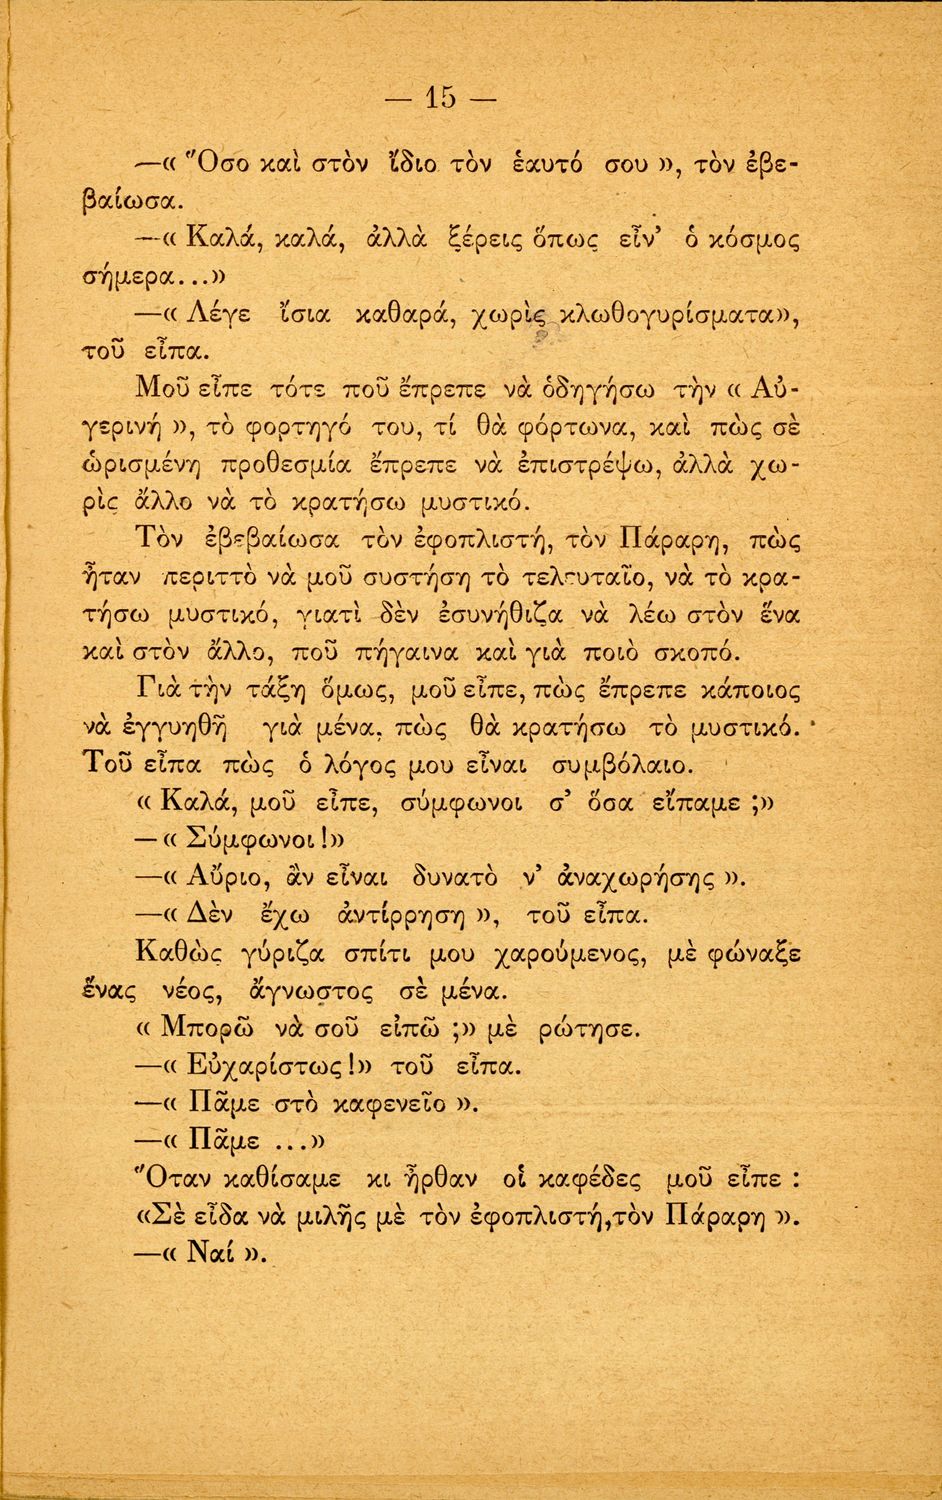 — 15 —
—« Ὅσο καὶ στὸν ἴδιο τὸν ἑαυτό σου », τὸν ἐβε-
βαίωσα.
—« Καλά, καλά, ἀλλὰ ξέρεις ὅπως εἶν’ ὁ κόσμος
σήμερα...»
—« Λέγε ἴσια καθαρά, χωρὶς κλωθογυρίσματα»,
τοῦ εἶπα.
Μοῦ εἶπε τότε ποῦ ἔπρεπε νὰ ὁδηγήσω τὴν « Αὐ-
γερινή », τὸ φορτηγό του, τί θὰ φόρτωνα, καὶ πὼς σὲ
ὡρισμένη προθεσμία ἔπρεπε νὰ ἐπιστρέψω, ἀλλὰ χω-
ρὶς ἄλλο νὰ τὸ κρατήσω μυστικό.
Τὸν ἐβεβαίωσα τὸν ἐφοπλιστή, τὸν Πάραρη, πὼς
ἦταν περιττὸ νὰ μοῦ συστήση τὸ τελευταῖο, νὰ τὸ κρα-
τήσω μυστικό, γιατὶ δὲν ἐσυνήθιζα νὰ λέω στὸν ἕνα
καὶ στὸν ἄλλο, ποῦ πήγαινα καὶ γιὰ ποιὸ σκοπό.
Γιὰ τὴν τάξη ὅμως, μοῦ εἶπε, πὼς ἔπρεπε κάποιος
νὰ ἐγγυηθῆ γιὰ μένα, πὼς θὰ κρατήσω τὸ μυστικό.
Τοῦ εἶπα πὼς ὁ λόγος μου εἶναι συμβόλαιο.
« Καλά, μοῦ εἶπε, σύμφωνοι σ’ ὅσα εἴπαμε ;»
— « Σύμφωνοι !»
—« Αὔριο, ἂν εἶναι δυνατὸ ν’ ἀναχωρήσης ».
—« Δὲν ἔχω ἀντίρρηση », τοῦ εἶπα.
Καθὼς γύριζα σπίτι μου χαρούμενος, μὲ φώναξε
ἕνας νέος, ἄγνωστος σὲ μένα.
« Μπορῶ νὰ σοῦ εἰπῶ ;» μὲ ρώτησε.
—« Εὐχαρίστως !» τοῦ εἶπα.
—« Πᾶμε στὸ καφενεῖο ».
—« Πᾶμε ...»
Ὅταν καθίσαμε κι ἦρθαν οἱ καφέδες μοῦ εἶπε :
«Σὲ εἶδα νὰ μιλῆς μὲ τὸν ἐφοπλιστή,τὸν Πάραρη ».
—« Ναί ».